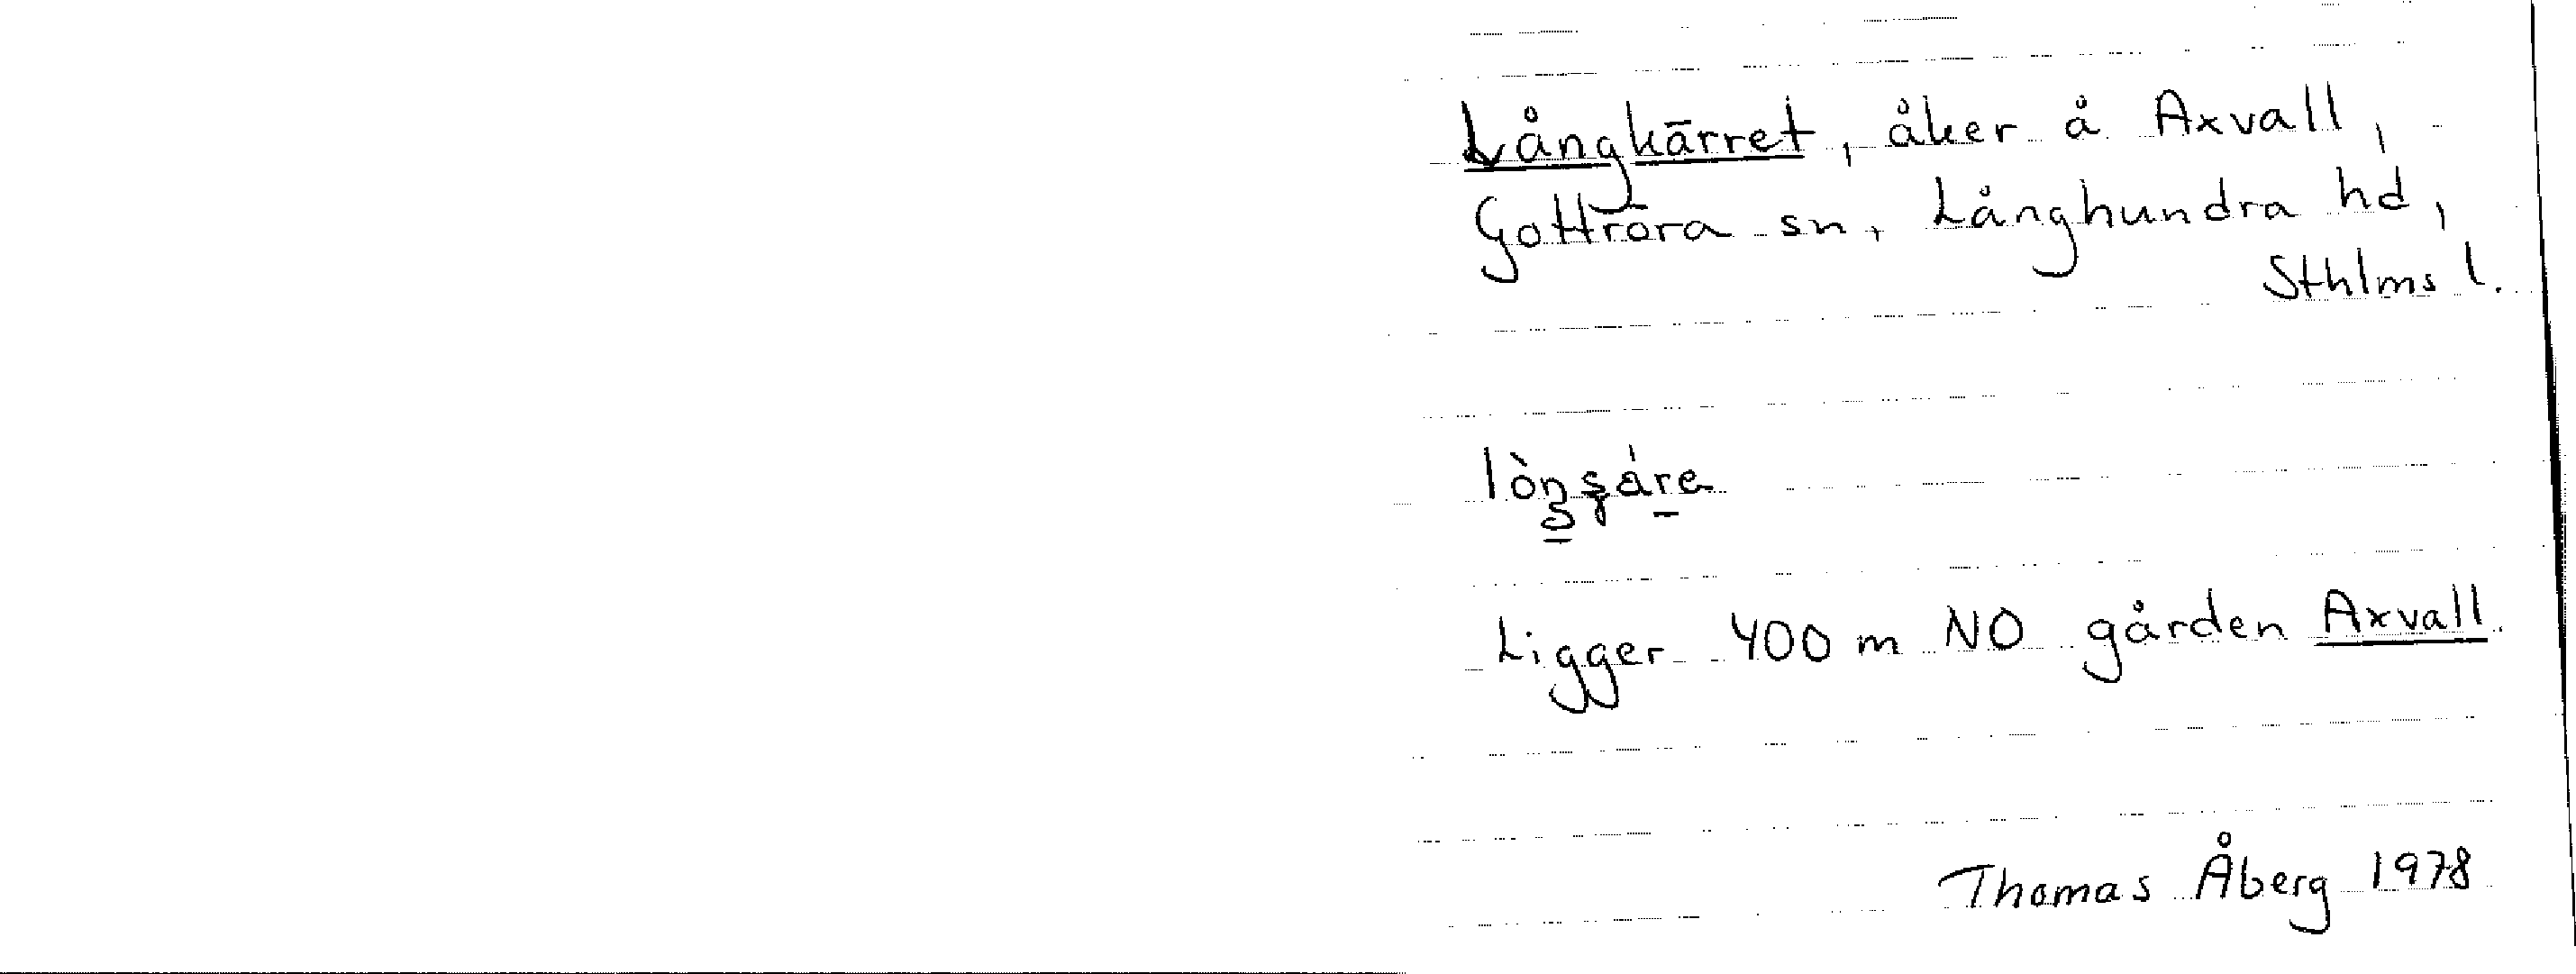 Långkärret, åker å Axvall,
Gottröra sn, Långhundra hd,
Sthlms l.
Ligger 400 m NO gården Axvall.
Thomas Åberg 1978